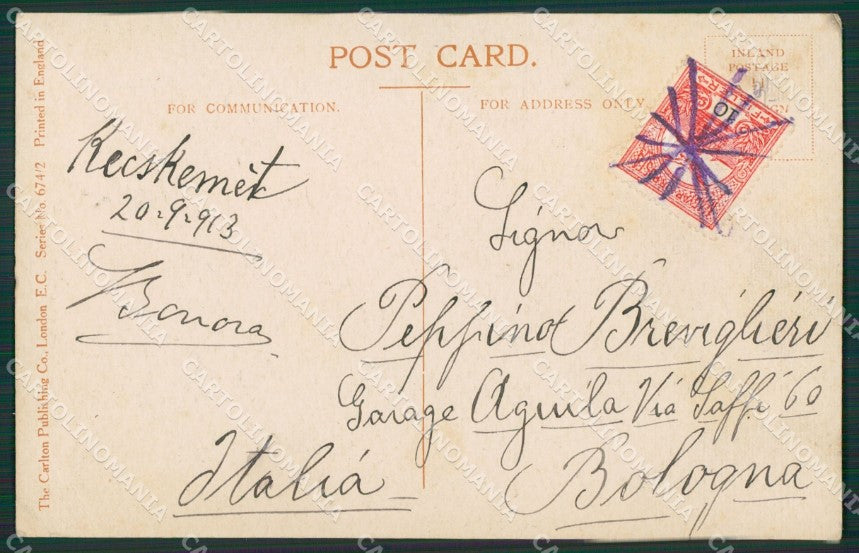 POST CARD.
FOR COMMUNICATION.
FOR ADDRESS ONLY.
INLAND
POSTAGE
Kecskemét
20-9-913
Bonora
Signor
Peppino Breviglieri
Garage Aquila Via Saffi 60
Bologna
Italiá
10
The Carlton Publishing Co., London E.C. Series No. 674/2 Printed in England
CARTOLINOMANIA